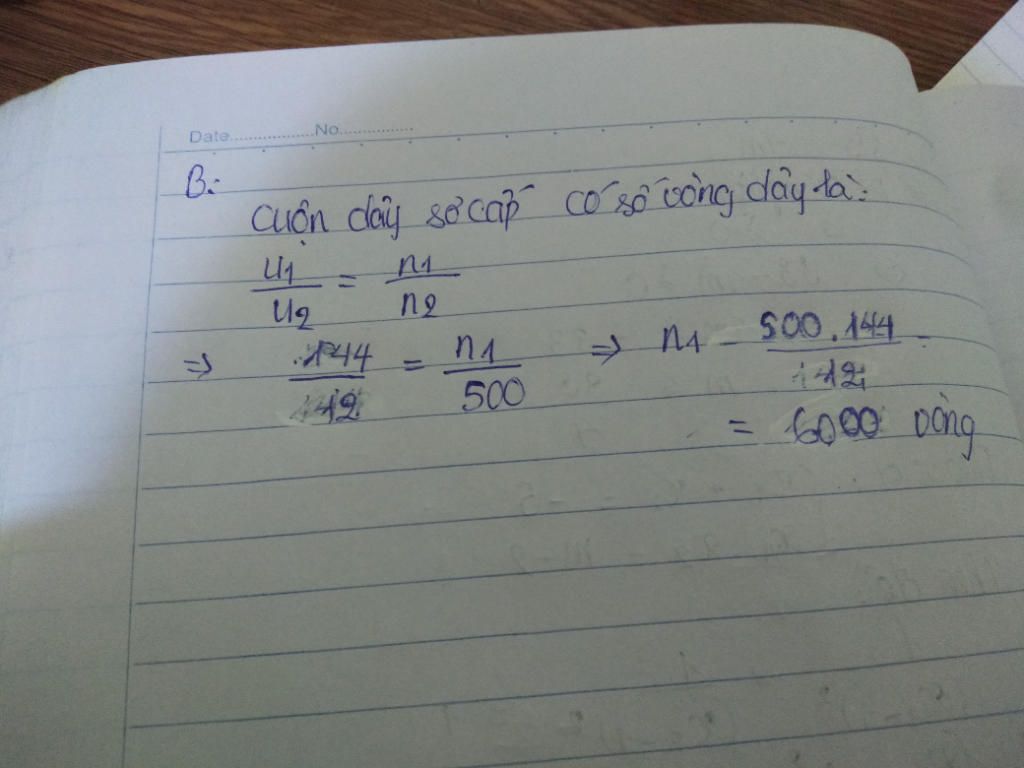 Date.................No................
B:
Cuộn dây sơ cấp có số vòng dây là:
U1/U2 = n1/n2
=> 144/12 = n1/500 => n1 = 500.144/12
= 6000 vòng